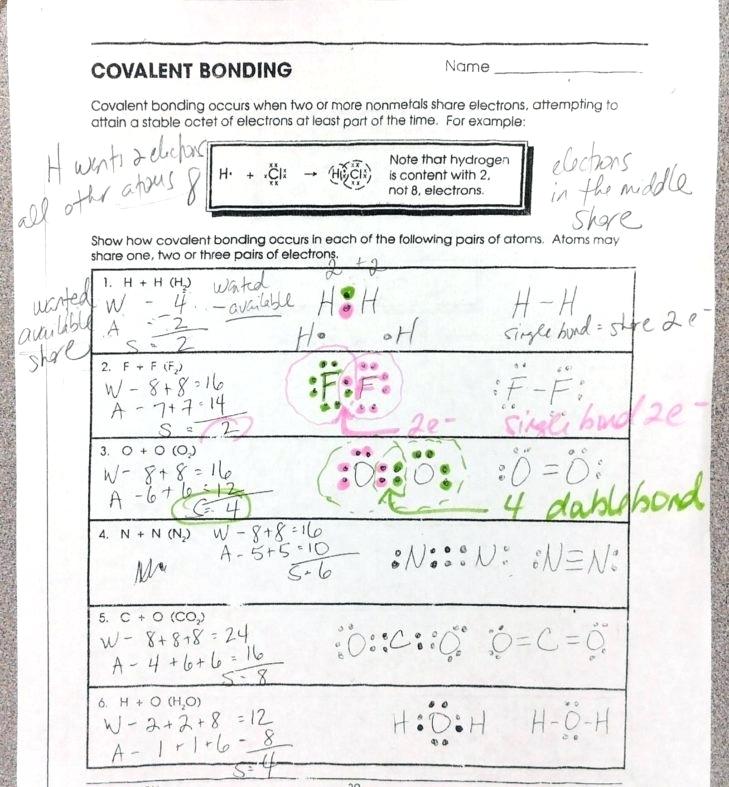 COVALENT BONDING
Name
Covalent bonding occurs when two or more nonmetals share electrons, attempting to
attain a stable octet of electrons at least part of the time. For example:
H wants 2 electrons
all other atoms 8
H· + ×Cl× → H Cl×
Note that hydrogen
is content with 2,
not 8, electrons.
electrons
in the middle
share
Show how covalent bonding occurs in each of the following pairs of atoms. Atoms may
share one, two or three pairs of electrons.
2 + 2
wanted
available
share
1. H + H (H₂)
W - 4
A - 2
S = 2
wanted
- available
H : H
H· ·H
H - H
single bond = share 2 e⁻
2. F + F (F₂)
W - 8+8=16
A - 7+7=14
S = 2
F F
2e-
:F-F:
single bond 2e-
3. O + O (O₂)
W- 8+8=16
A -6+6=12
S= 4
:O::O:
:O=O:
4 double bond
4. N + N (N₂)
W - 8+8=16
A- 5+5=10
S=6
:N:::N:
:N≡N:
5. C + O (CO₂)
W- 8+8+8=24
A- 4+6+6=16
S=8
:O::C::O:
O=C=O
6. H + O (H₂O)
W-2+2+8 =12
A- 1+1+6- 8
S=4
H:O:H
H-O-H